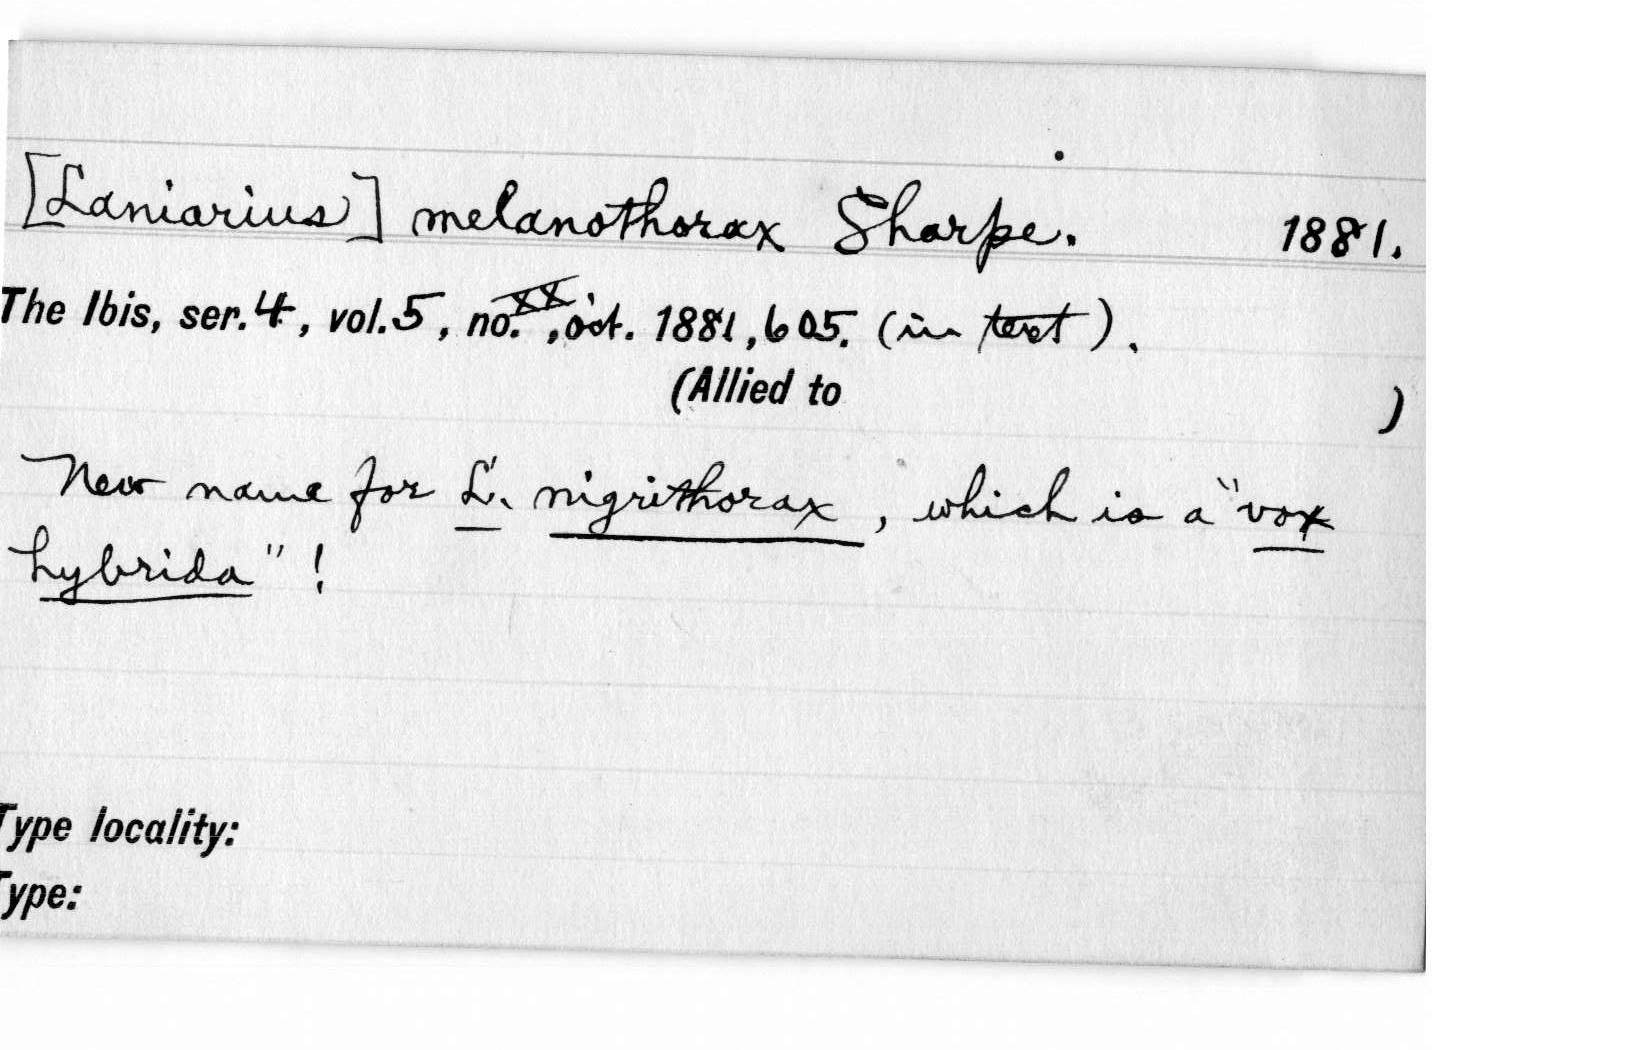 [Laniarius] melanothorax Sharpe. 1881.
The Ibis, ser. 4, vol. 5, no. XX, oct. 1881, 605. (in text).
(Allied to )
New name for L. nigrithorax, which is a "vox
hybrida"!
Type locality:
Type: